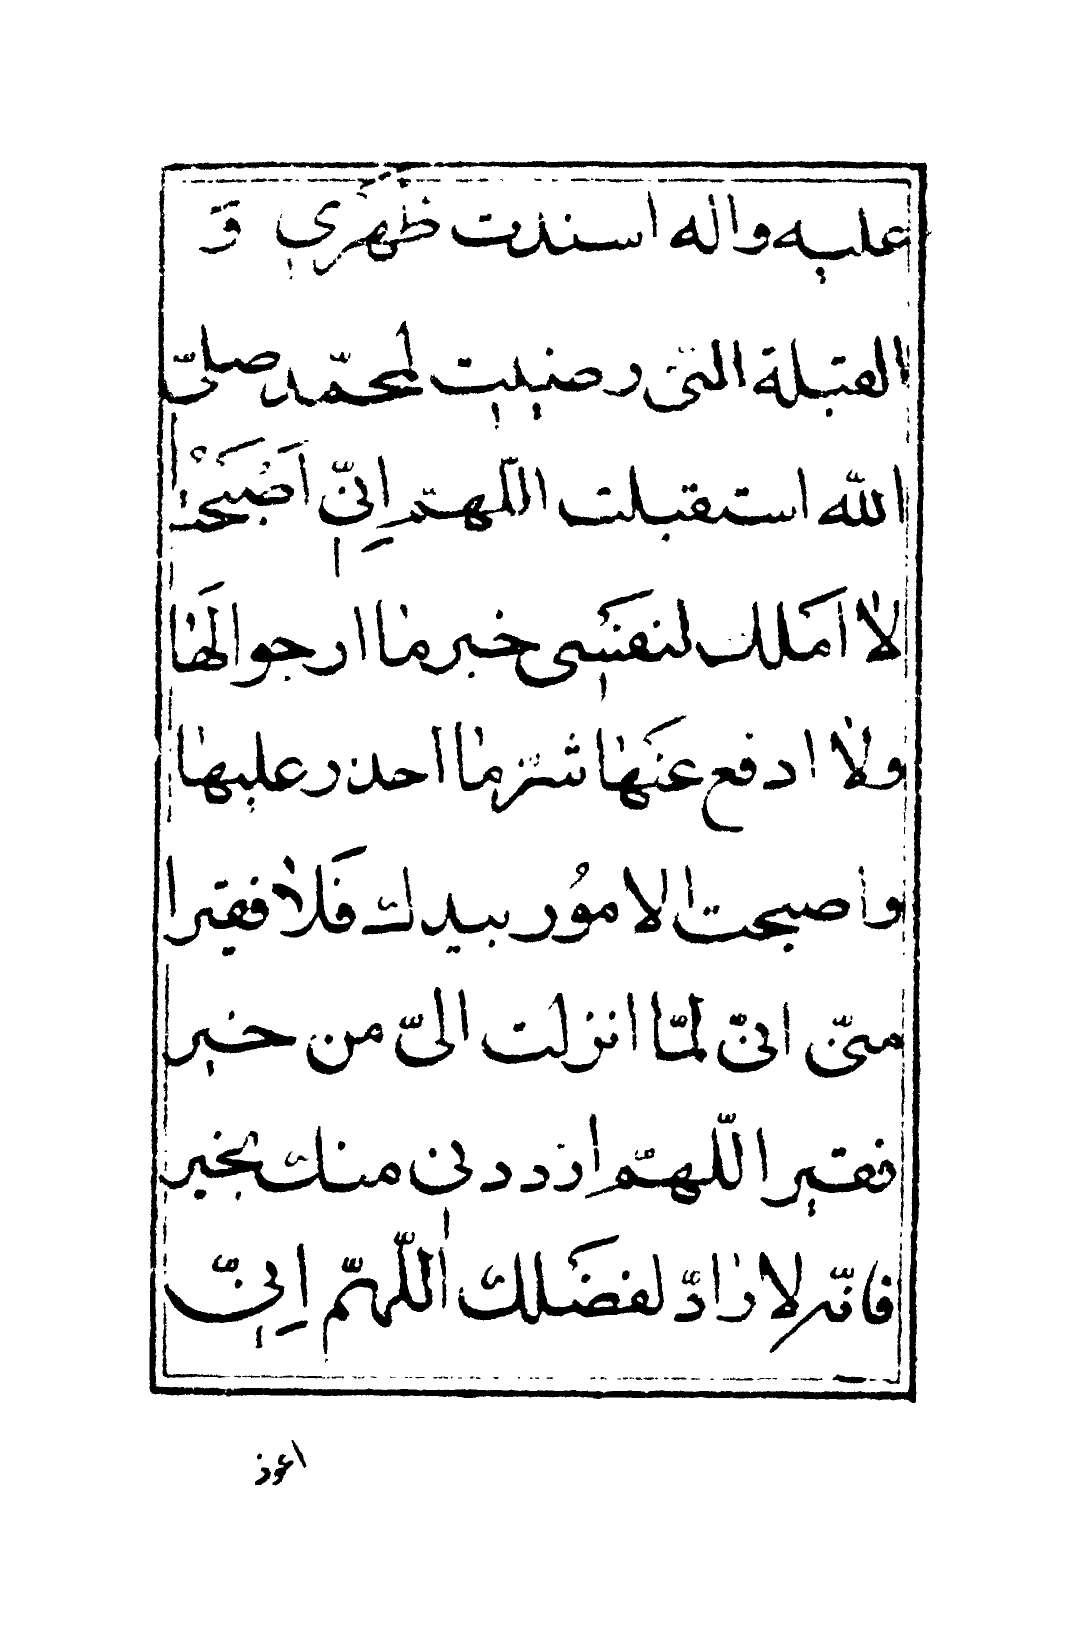 عليه واله اسندت ظَهْرِي وَ
القبلة التى رضيت لمحمّد صلّى
اللّه استقبلت اللّهمّ اِنّى اَصْبَحْتُ
لا اَملك لنفَسى خير ما ارجو الَها
ولا ادفع عنَها شرّ ما احذر عليها
واصبحت الامُور بيدك فَلا فقير ا
منّى انّى لمّا انزلت الىّ من خير
فقير اللّهمّ ارددنى منك بخير
فانّه لا رادّ لفضَلك اللّهمّ اِنّى
اعوذ